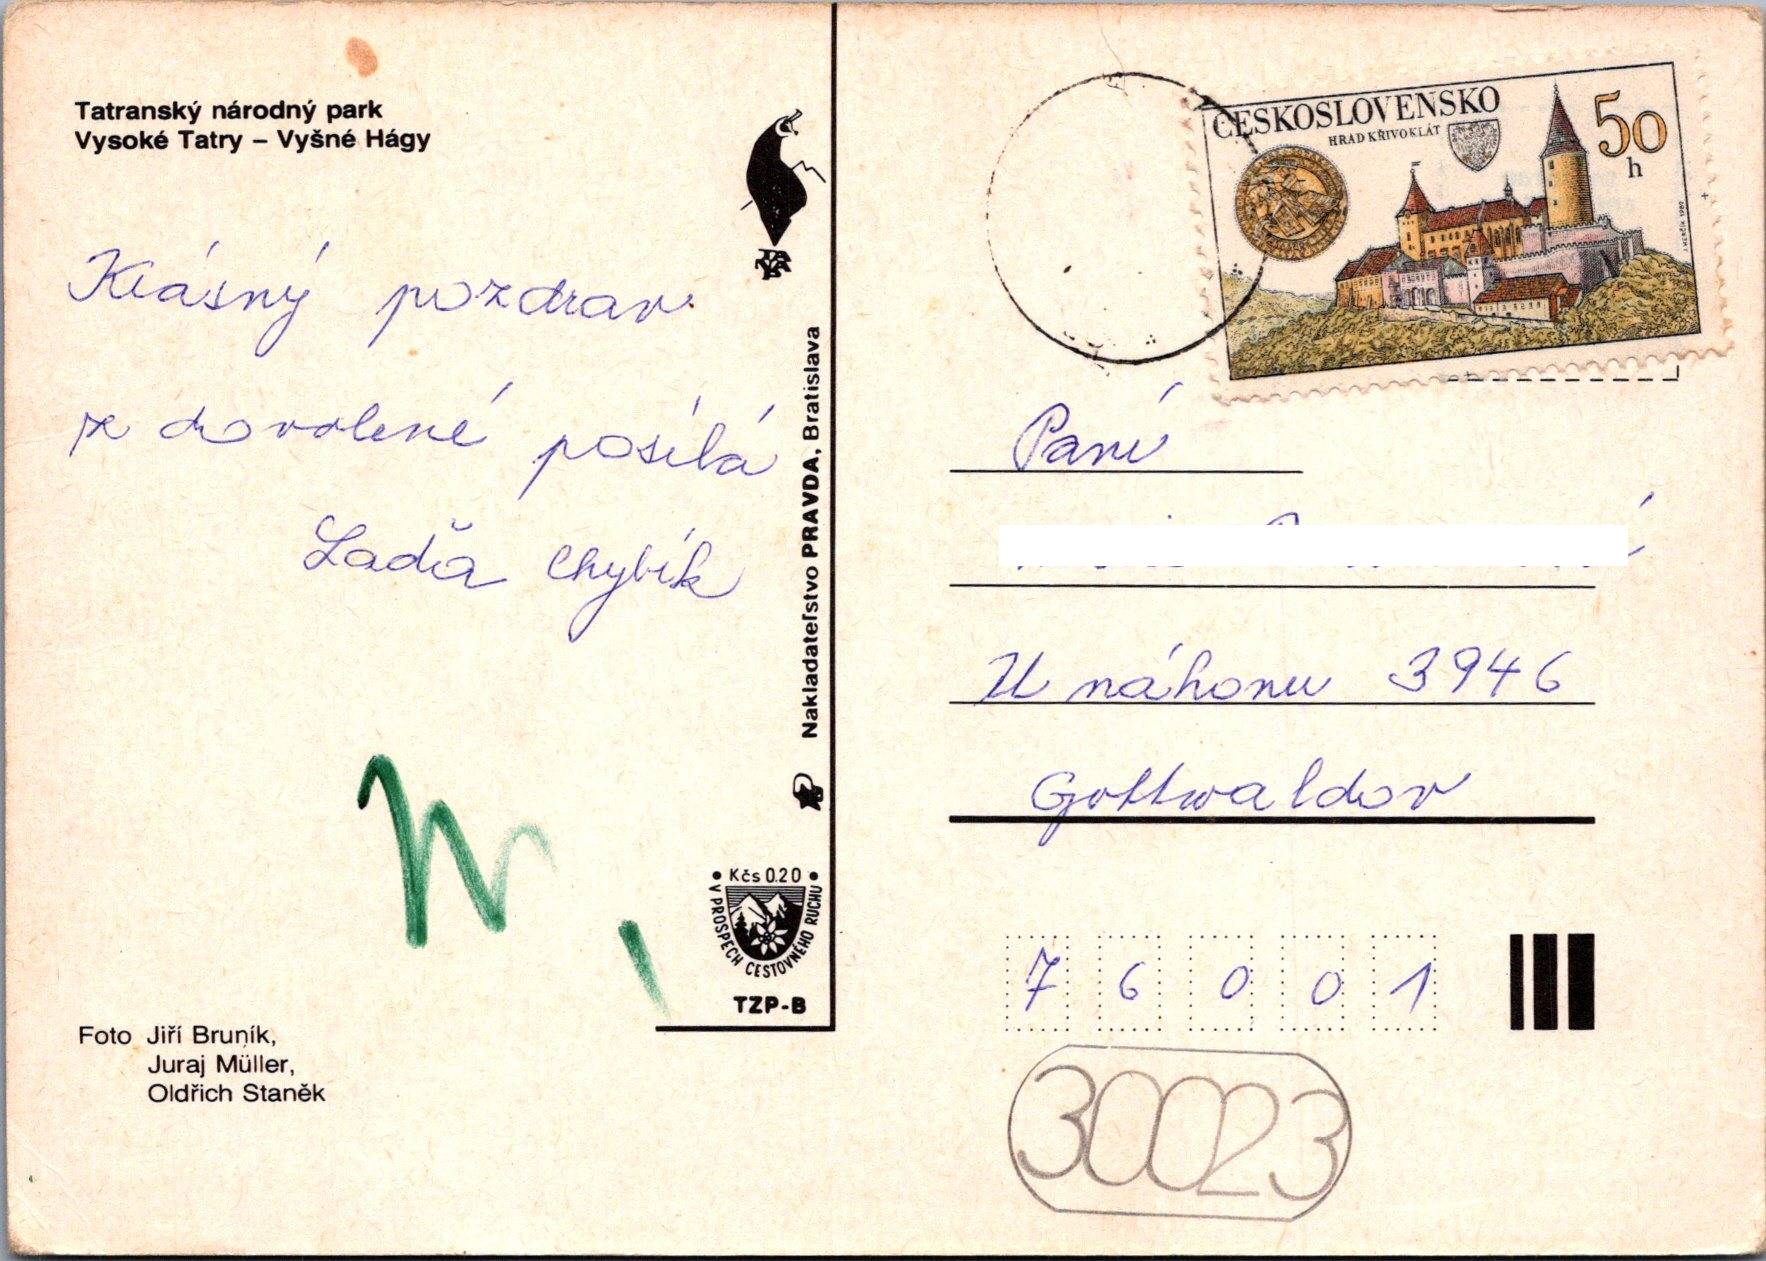 Tatranský národný park
Vysoké Tatry – Vyšné Hágy
Krásný pozdrav
z dovolené posílá
Laďa Chybík
Foto Jiří Bruník,
Juraj Müller,
Oldřich Staněk
Nakladateľstvo PRAVDA, Bratislava
Kčs 0.20
V PROSPECH CESTOVNÉHO RUCHU
TZP-B
ČESKOSLOVENSKO
HRAD KŘIVOKLÁT
50
h
Paní
U náhonu 3946
Gottwaldov
76001
30023